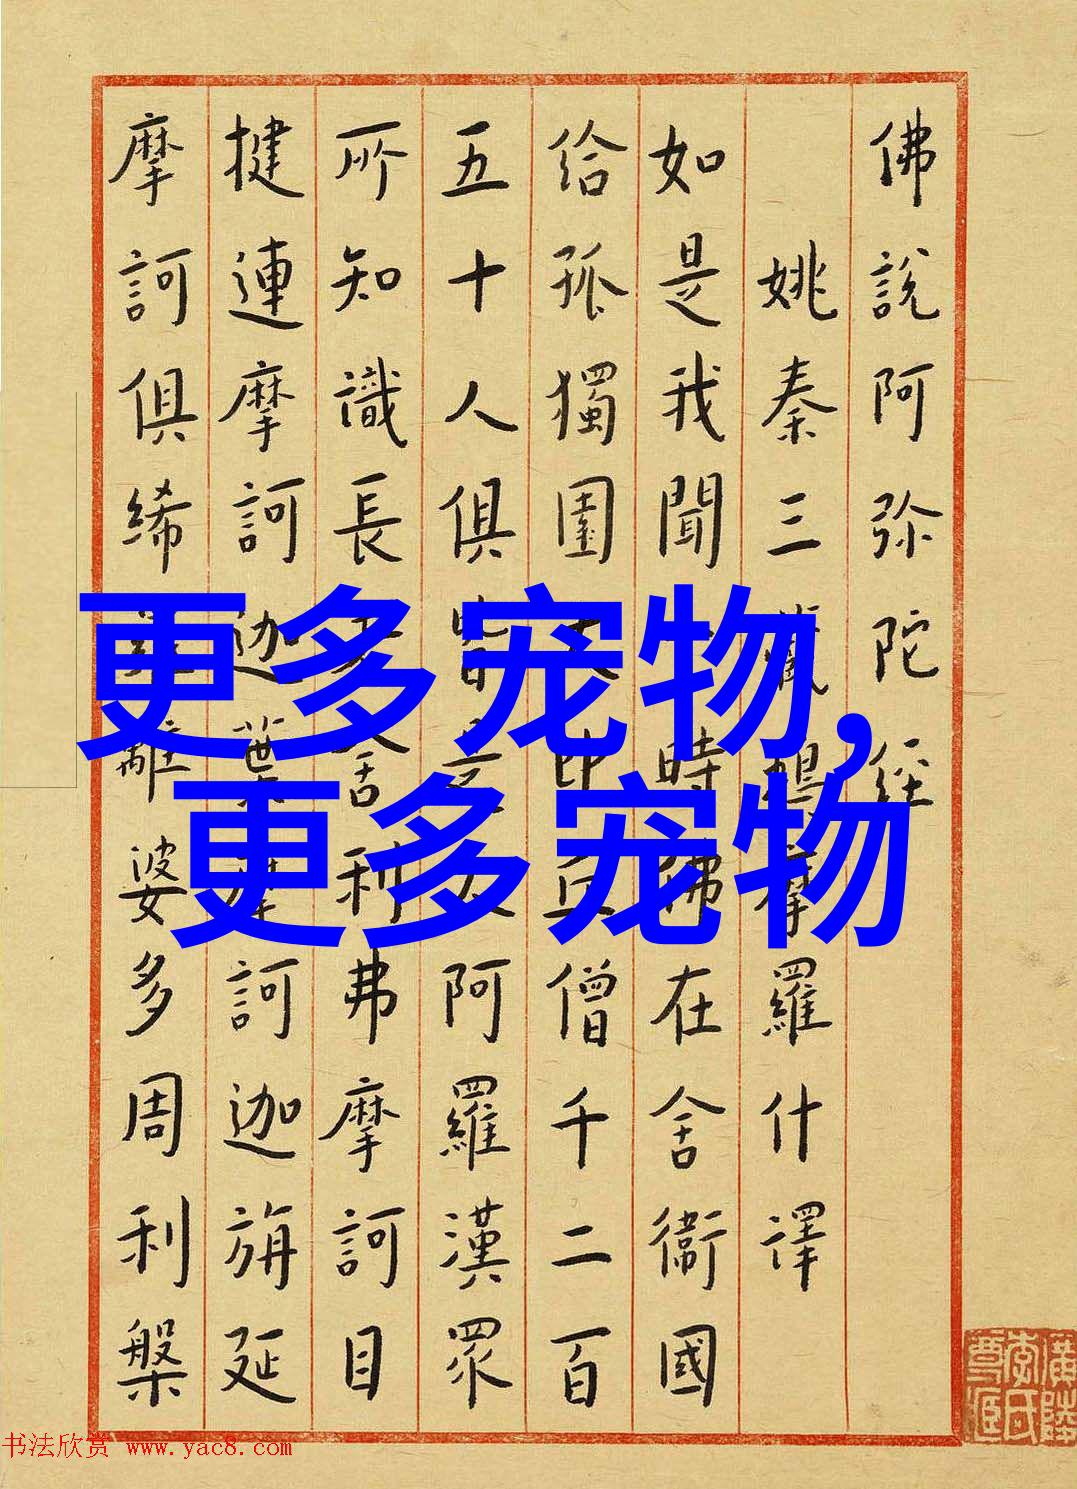 佛說阿弥陀経
姚秦三藏摩羅什譯
如是我聞一時佛在舍衛國
給孤獨園大丘僧千二百
五十人俱皆是大阿羅漢眾
所知識長老舍利弗摩訶目
揵連摩訶迦葉摩訶迦旃延
摩訶俱絺羅離婆多周利槃
更多宠物,
更多宠物
书法欣赏 www.yac8.com